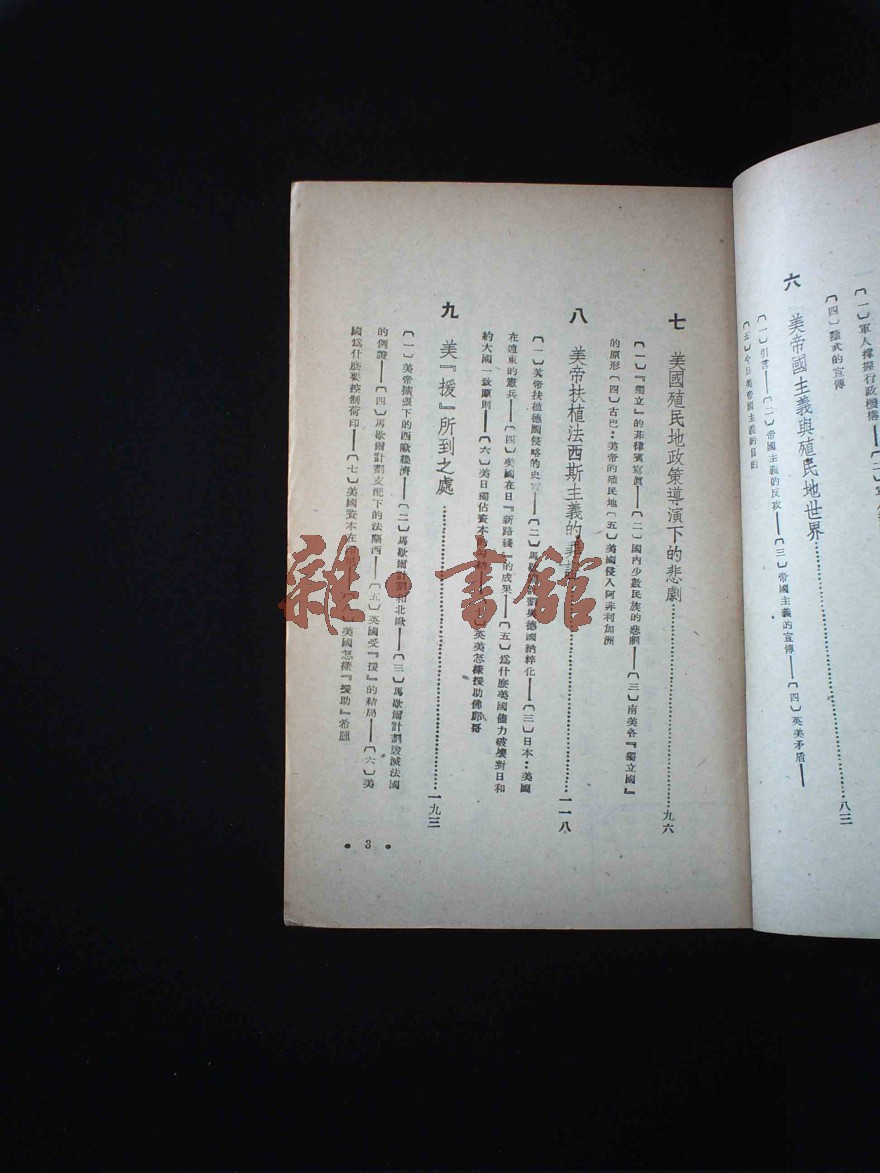 〔一〕軍人撐握行政機構
〔四〕陰武的宣傳
六 美帝國主義與殖民地世界 八三
〔一〕引言——〔二〕帝國主義的反攻——〔三〕帝國主義的宣傳——〔四〕英美矛盾——
〔五〕今日美帝國主義的目的
七 美國殖民地政策導演下的悲劇 九六
〔一〕『獨立』的菲律賓寫眞——〔二〕國內少數民族的悲劇——〔三〕南美各『獨立國』
的原形〔四〕古巴：美帝的殖民地〔五〕美國侵入阿非利加洲
八 美帝扶植法西斯主義的 一一八
〔一〕美帝扶植德國侵略的史實——〔二〕馬德國納粹化——〔三〕日本：美國
在遠東的憲兵——〔四〕美國在日『新路綫』的成果——〔五〕爲什麽美國儘力破壞對日和
約大國一致原則——〔六〕美日獨佔資本的——英美怎樣援助佛郎哥
九 美『援』所到之處 一九三
〔一〕美帝擴張下的西歐經濟——〔二〕馬歇爾計劃和北歐——〔三〕馬歇爾計劃毀滅法國
的例證——〔四〕馬歇爾計劃支配下的法蘭西——〔五〕英國受『援』的結局——〔六〕美
國爲什麽要控制荷印——〔七〕美國資本在 美國怎樣『援助』希臘
• 3 •
雜·書館